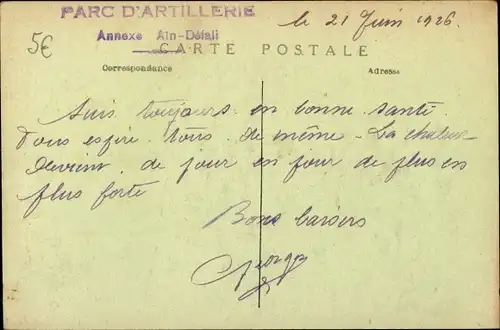 PARC D'ARTILLERIE
Annexe Ain-Défali
le 21 Juin 1926.
5€
CARTE POSTALE
Correspondance
Adresse
Suis toujours en bonne santé
Vous espère tous de même. La chaleur
devient de jour en jour de plus en
plus forte
Bons baisers
Georges